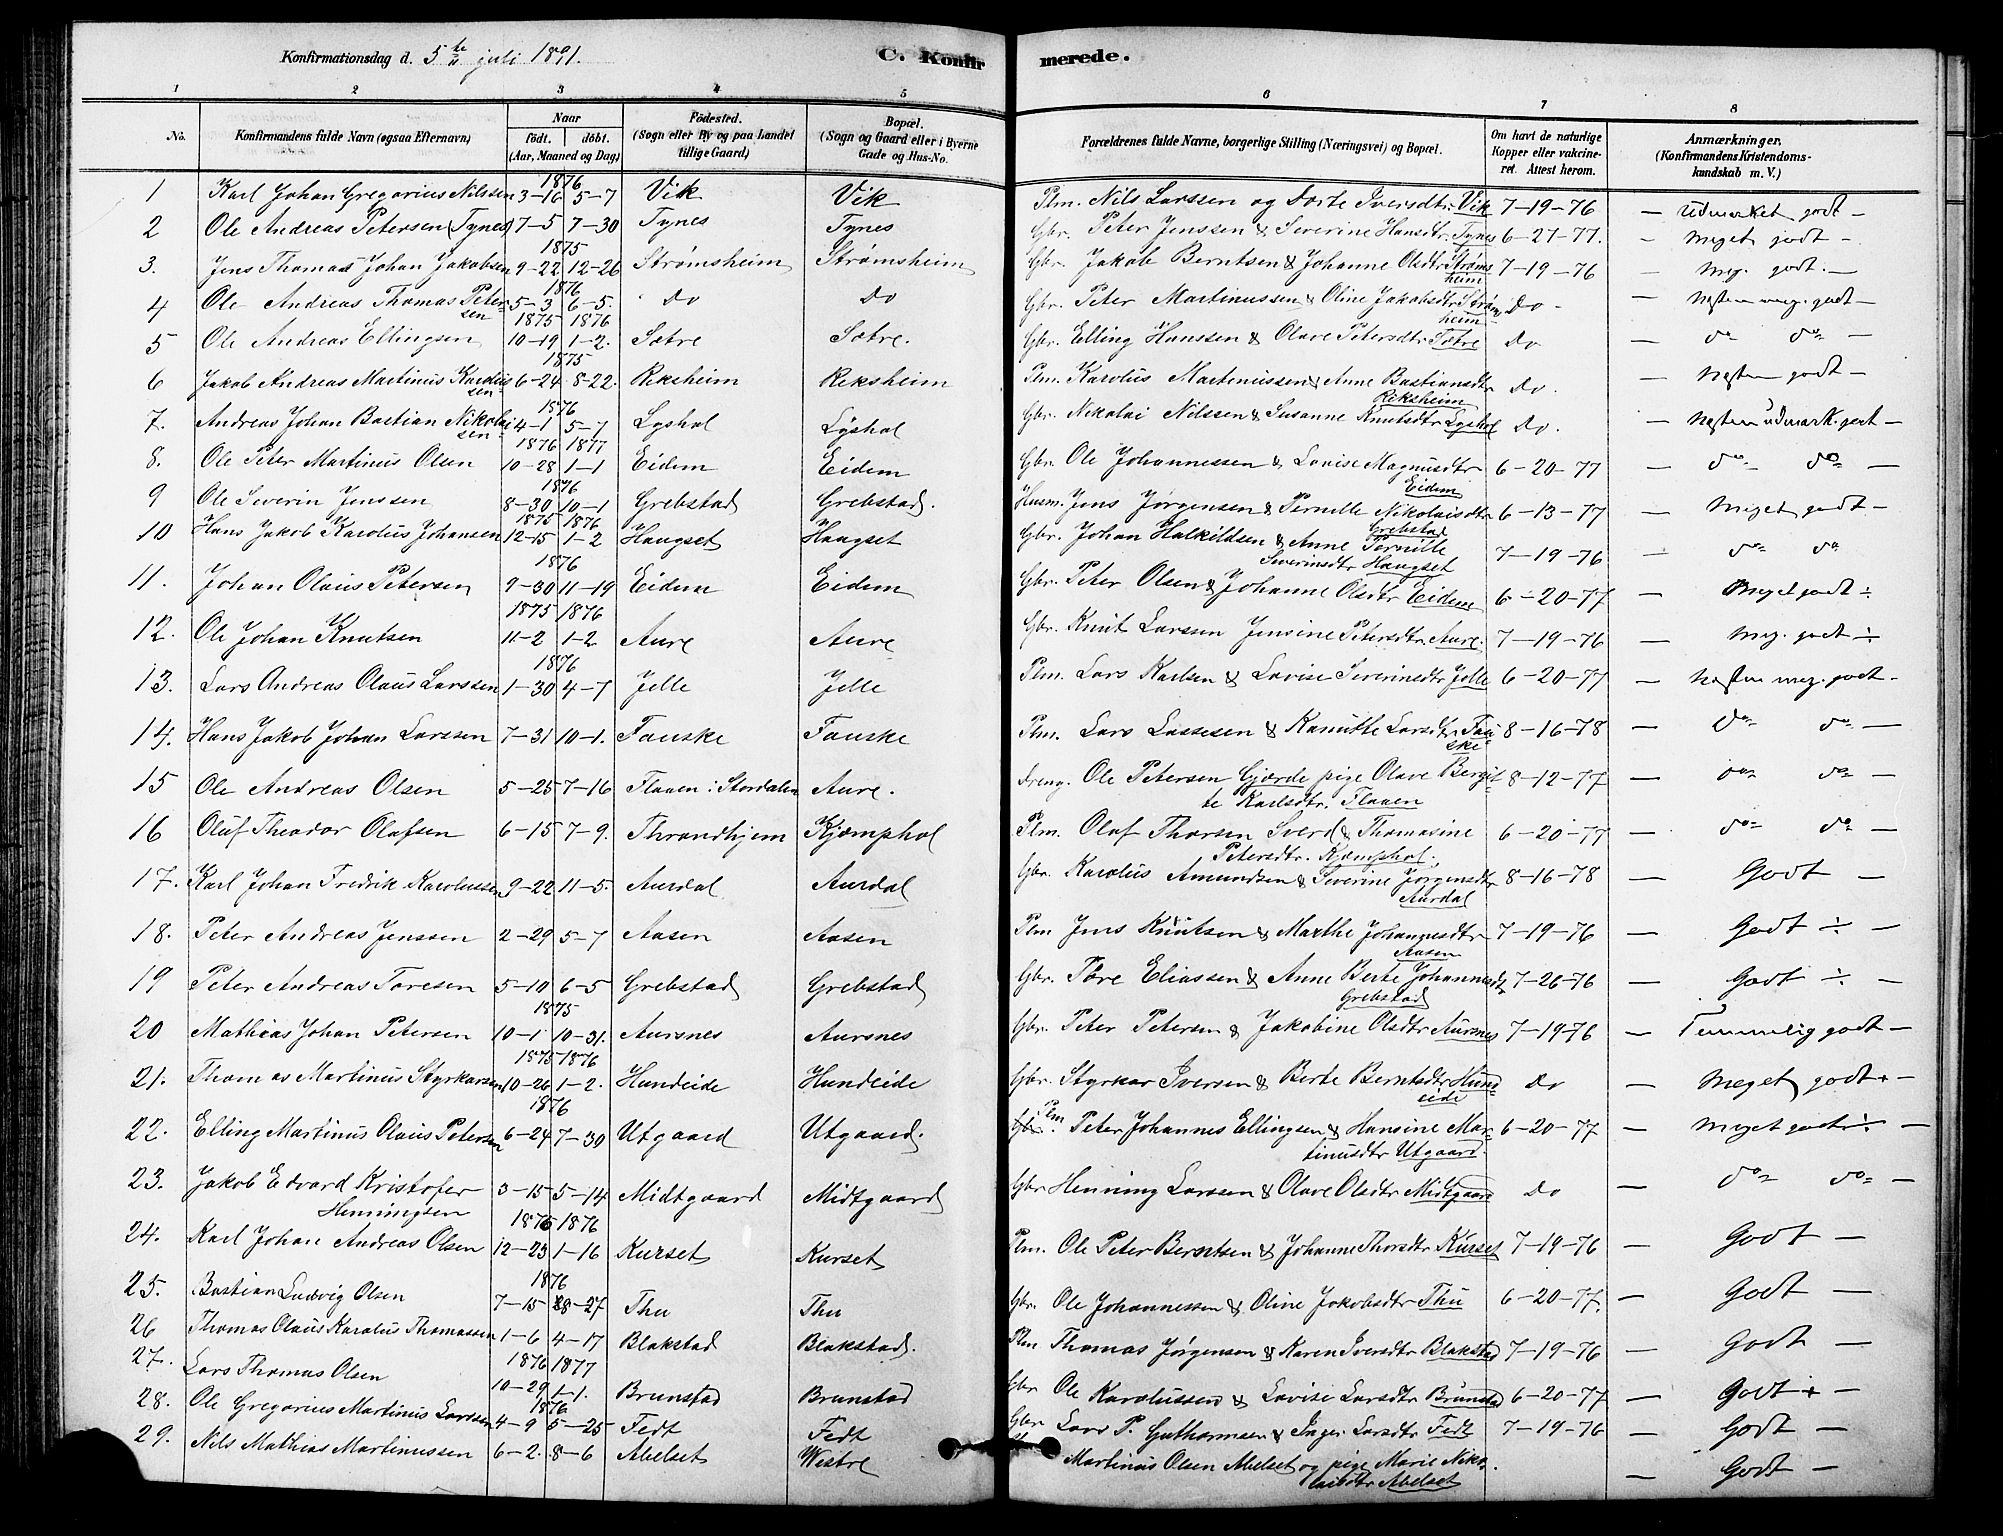 Konfirmationsdag d. 5te juli 1891.
C. Konfirmerede.
1 2 3 4 5 6 7 8
No. Konfirmandens fulde Navn (ogsaa Efternavn) Naar födt. döbt. (Aar, Maaned og Dag) Födested. (Sogn eller By og paa Landet tillige Gaard) Bopæl. (Sogn og Gaard eller i Byerne Gade og Hus-No. Forældrenes fulde Navne, borgerlige Stilling (Næringsvei) og Bopæl. Om havt de naturlige Kopper eller vakcineret. Attest herom. Anmærkninger, (Konfirmandens Kristendomskundskab m. V.)
1876
1 Karl Johan Gregorius Nilssen 3-16 5-7 Vik Vik Plm. Nils Larssen og Dorte Iversdtr. Vik 7-19-76 — Udmærket godt —
2 Ole Andreas Petersen (Tynes) 7-5 7-30 Tynes Tynes Gbr. Peter Jenssen & Severine Hansdtr Tynes 6-27-77. — Meget godt —
1875
3. Jens Thomas Johan Jakobsen 9-22 12-26 Strømsheim Strømsheim Gbr. Jakob Berntsen & Johanne Olsdtr Strømsheim 7-19-76 — Meg. godt. —
1876
4 Ole Andreas Thomas Petersen 5-3 6-5. Do Do Gbr. Peter Martinussen & Oline Jakobsdtr Strømheim Do — Næsten meg. godt —
1875 1876
5 Ole Andreas Ellingsen 10-19 1-2. Sætre Sætre. Gbr. Elling Hanssen & Olave Petersdtr Sætre Do — do do —
1875
6 Jakob Andreas Martinus Karolussen 6-24 8-22. Reksheim Reksheim Plm. Karolus Martinussen & Anne Bastiansdtr Reksheim Do. — Næsten godt —
1876
7. Andreas Johan Bastian Nikolaisen 4-1 5-7 Lyshol Lyshol Gbr. Nikolai Nilssen & Susanne Knutsdtr Lyshol Do. — Næsten udmærk. godt —
1876 1877
8. Ole Peter Martinus Olsen 10-28 1-1 Eidem Eidem Gbr. Ole Johannessen & Lovise Magnusdtr Eidem 6-20-77 — do do —
1876
9 Ole Severin Jenssen 8-30 10-1 Grebstad Grebstad. Husm. Jens Jørgensen & Pernille Nikolaisdtr Grebstad 6-13-77 — Meget godt —
1875 1876
10 Hans Jakob Karolus Johansen 12-15 1-2 Haugset Haugset Gbr. Johan Halkildsen & Anne Pernille Severinsdtr Haugset 7-19-76 — do do
1876
11. Johan Olaus Petersen 9-30 11-19 Eidem Eidem Gbr. Peter Olsen & Johanne Olsdtr Eidem 6-20-77 — Meget godt ÷
1875 1876
12. Ole Johan Knutsen 11-2 1-2 Aure Aure Gbr. Knut Larssen Jensine Petersdtr Aure. 7-19-76 — Meg. godt ÷
1876
13. Lars Andreas Olaus Larssen 1-30 4-7 Jelle Jelle Plm. Lars Karlsen & Lovise Severinsdtr Jelle 6-20-77 — Næsten meg. godt —
14. Hans Jakob Johan Larssen 7-31 10-1. Fauske Fauske Plm. Lars Lassesen & Kanutte Larsdtr Fauske 8-16-78 — do do —
15 Ole Andreas Olsen 5-25 7-16 Flaaen i Stordalen Aure. Dreng. Ole Petersen Gjærde pige Olave Bergitte Karlsdtr. Flaaen 8-12-77 — do do —
16 Oluf Theodor Olafsen 6-15 7-9. Throndhjem Kjæmphol Plm. Olaf Thorsen Sverd & Thomasine Petersdtr. Kjæmphol. 6-20-77 — do do —
17. Karl Johan Fredrik Karolussen 9-22 11-5. Aurdal Aurdal Gbr. Karolus Amundsen & Severine Jørgensdtr Aurdal 8-16-78 — Godt —
18. Peter Andreas Jenssen 2-29 5-7 Aasen Aasen Plm Jens Knutsen & Marthe Johannesdtr Aasen 7-19-76 — Godt ÷ —
19 Peter Andreas Toresen 5-10 6-5 Grebstad Grebstad Gbr. Tore Eliassen & Anne Berte Johannesdtr Grebstad 7-26-76 — Godt ÷ —
1875
20 Mathias Johan Petersen 10-1 10-31. Aursnes Aursnes Gbr. Peter Petersen & Jakobine Olsdtr Aursnes 7-19-76 — Temmelig godt —
1875 1876
21. Thomas Martinus Styrkarsen 10-26 1-2. Hundeide Hundeide Gbr. Styrkar Iversen & Berte Berntsdtr Hundeide Do — Meget godt + —
1876
22. Elling Martinus Olaus Petersen 6-24 7-30 Utgaard Utgaard. Plm Gbr. Peter Johannes Ellingsen & Hansine Martinusdtr Utgaard. 6-20-77 — Meget godt ÷ —
23. Jakob Edvard Kristofer Henningsen 3-15 5-14 Midtgaard Midtgaard Gbr Henning Larssen & Olave Olsdtr Midtgaard Do — do do —
1875 1876
24. Karl Johan Andreas Olsen 12-23 1-16 Kurset Kurset Plm. Ole Peter Berntsen & Johanne Thorsdtr Kurset 7-19-76 — Godt —
1876
25. Bastian Ludvig Olsen 7-15 8-27 Thu Thu Gbr. Ole Johannessen & Oline Jakobsdtr Thu 6-20-77. — Godt —
26 Thomas Olaus Karolus Thomassen 1-6 4-17 Blakstad Blakstad. Plm Thomas Jørgensen & Karen Iversdtr Blakstad 7-19-76 — Godt —
1876 1877
27. Lars Thomas Olsen 10-29 1-1. Brunstad Brunstad Gbr Ole Karolussen & Lovise Larsdtr Brunstad 6-20-77 — Godt + —
1876
28. Ole Gregorius Martinus Larssen 4-9 5-25 Fedt Fedt Gbr Lars P. Guthormsen & Inger Larsdtr Fedt 7-19-76 — Godt —
29. Nils Mathias Martinussen 6-2. 8-6 Abelset Westre Martinus Olsen Abelset og pige Marie Nikolaisdtr Abelset — Godt —